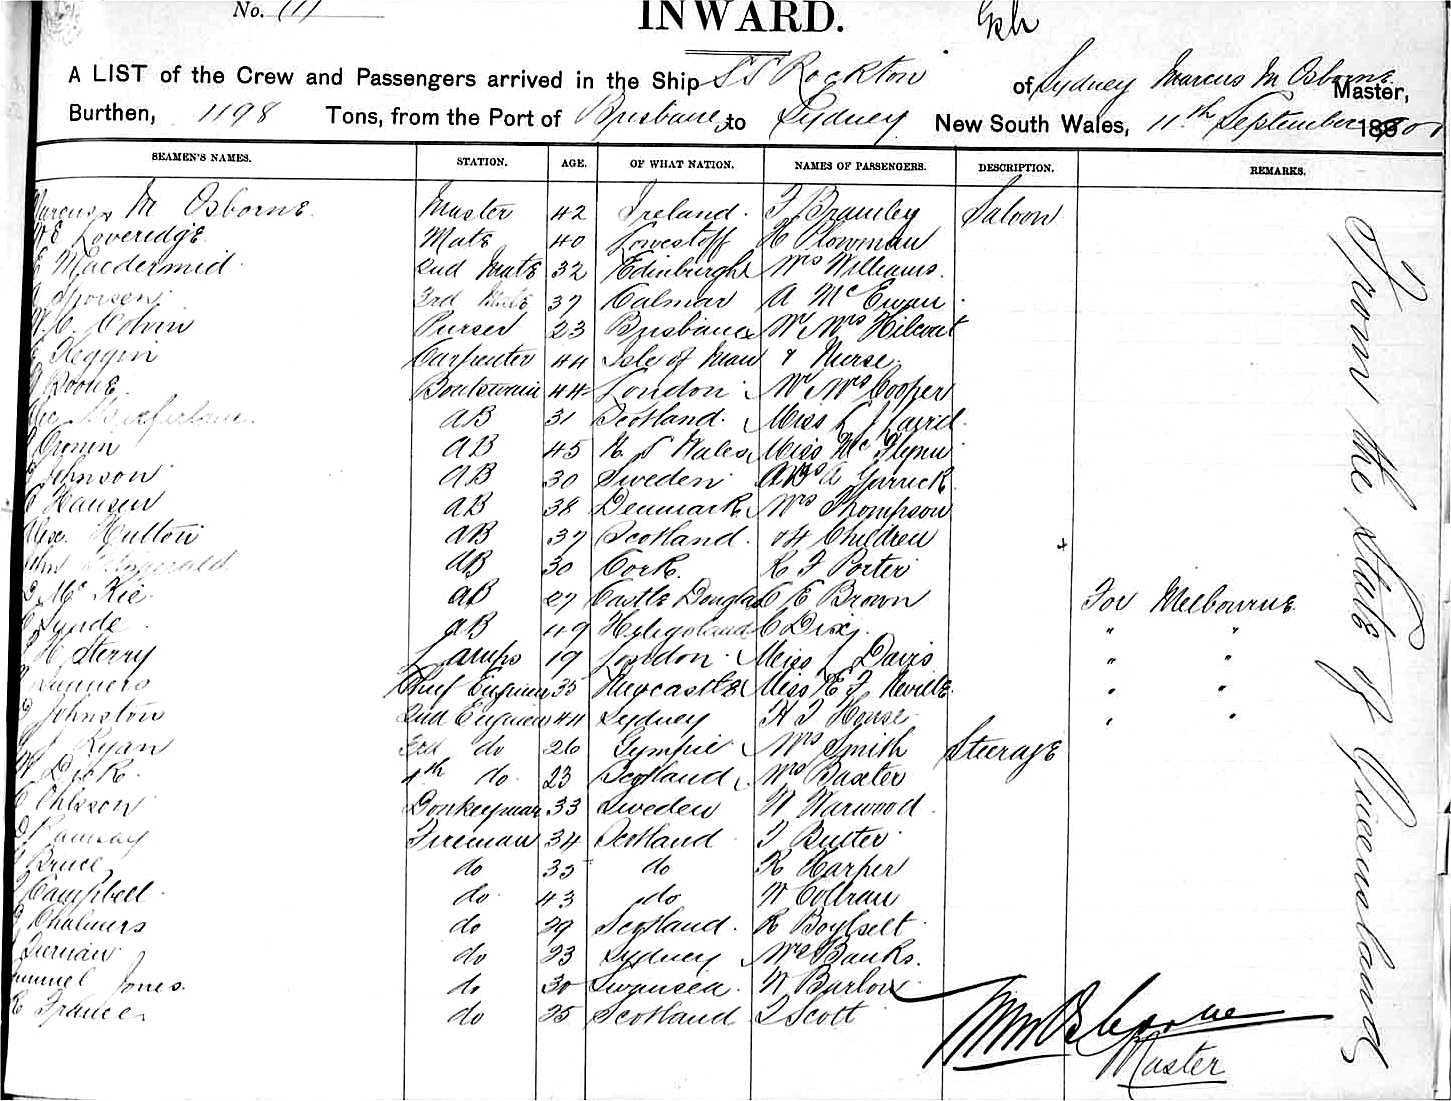 No.
INWARD.
A LIST of the Crew and Passengers arrived in the Ship SS Rockton of Sydney Marcus M Osborne Master,
Burthen, 1198 Tons, from the Port of Brisbane to Sydney New South Wales, 11th September 1901
SEAMEN'S NAMES. STATION. AGE. OF WHAT NATION. NAMES OF PASSENGERS. DESCRIPTION. REMARKS.
Marcus M Osborne Master 42 Ireland. F Bramley Saloon
Loveridge Mate 40 Lowestoff H Plowman
Macdermid 2nd Mate 32 Edinburgh Mrs Williams
3rd Mate 37 Calmar A McEwan
Colvin Purser 23 Brisbane Mr Mrs Hilcoat
Keggin Carpenter 44 Isle of Man & Nurse
Boatswain 44 London Mr Mrs Cooper
AB 31 Scotland. Miss L J Laird
Cronin AB 45 N S Wales Miss McFlynn
Johnson AB 30 Sweden Garrick
Hansen AB 38 Denmark Mrs Thompson
Alex Hutton AB 37 Scotland. & 4 Children
John Fitzgerald AB 30 Cork. R F Porter
McKie AB 27 Castle Douglas C E Brown For Melbourne
Lunde AB 49 Heligoland C Dix " "
Sterry Lamps 19 London Miss L Davis " "
Chief Engineer 35 Newcastle Miss E F Neville " "
Johnston 2nd Engineer 44 Sydney H T House " "
Ryan 3rd do 26 Gympie Mrs Smith Steerage
W Dick 4th do 23 Scotland Mrs Baxter
Ohlsson Donkeyman 33 Sweden W Warwood
Ramsay Fireman 34 Scotland T Butter
Bruce do 35 do R Harper
Campbell do 43 do W Coltran
Chalmers do 29 Scotland. R
do 23 Sydney Mrs Banks.
Samuel Jones. do 30 Swansea W Barlow
Frances do 25 Scotland T Scott
M M Osborne
Master
From the State of Queensland